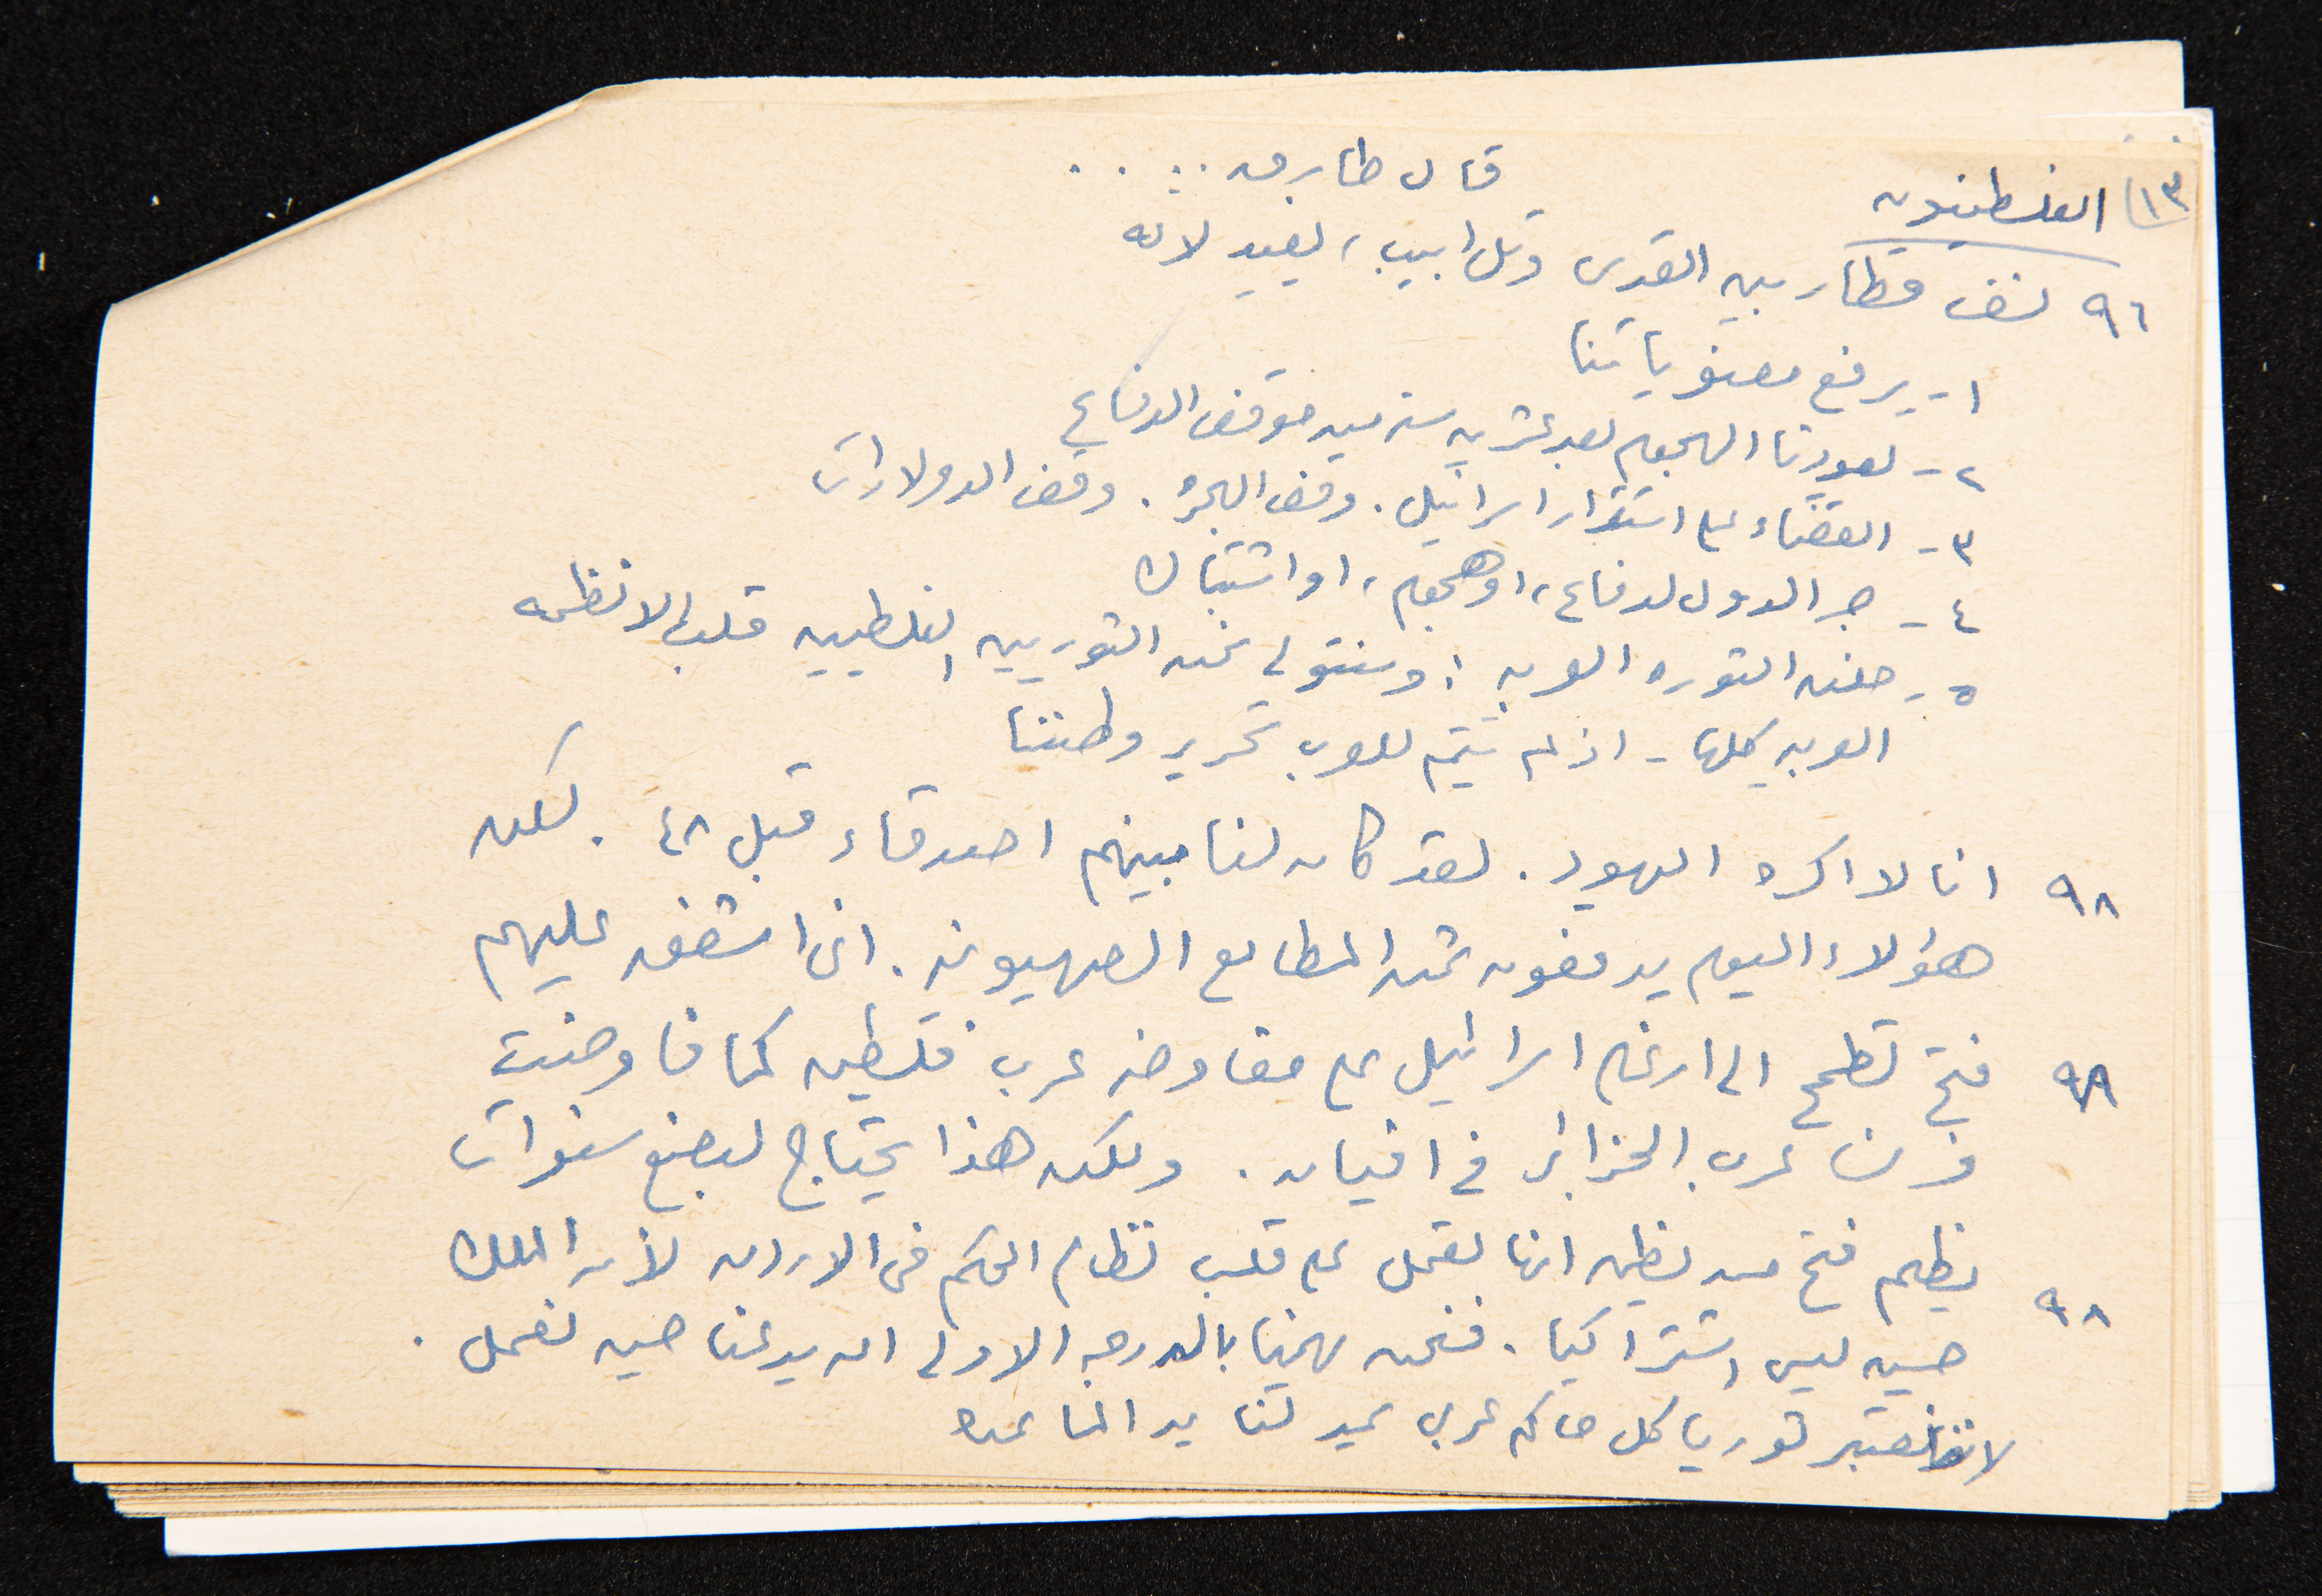 ١٣) الفلسطينيون
قال طارق . . . .
٩٦ نسف قطار بين القدس وتل ابيب، يفيد لانه
١- يرفع معنوياتنا
٢- يعودنا الهجوم بعد عشرين سنه من موقف الدفاع
٣- القضاء على استقرار اسرائيل. وقف الهجرة. وقف الدولارات
٤- جر الدول لدفاع، او هجوم، او اشتباك
٥- الثوره العربيه: وسنتولى نحن الثوريين الفلسطينيين قلب الانظمه
العربيه كلها - اذ لم يتم للعرب تحرير وطننا
٩٨ انا لا اكره اليهود. لقد كان لنا بينهم اصدقاء قبل ٤٨. لكن
هؤلاء اليوم يدفعون ثمن المطامع الصهيونيه. انى اشفق عليهم
٩٨ فتح تطمح الى ارغام اسرائيل على مفاوضه عرب فلسطين كما فاوضت
فرنسا عرب الجزائر فى افيان. ولكن هذا يحتاج لبضع سنوات
٩٨ يظلم فتح من يظن انها تعمل على قلب نظام الحكم فى الاردن لأن الملك
حسين ليس اشتراكيا. فنحن يهمنا بالدرجه الاولى ان يدعنا حين نعمل.
لاننا نعتبر ثوريا كل حاكم عربى يمد لنا يد المساعده